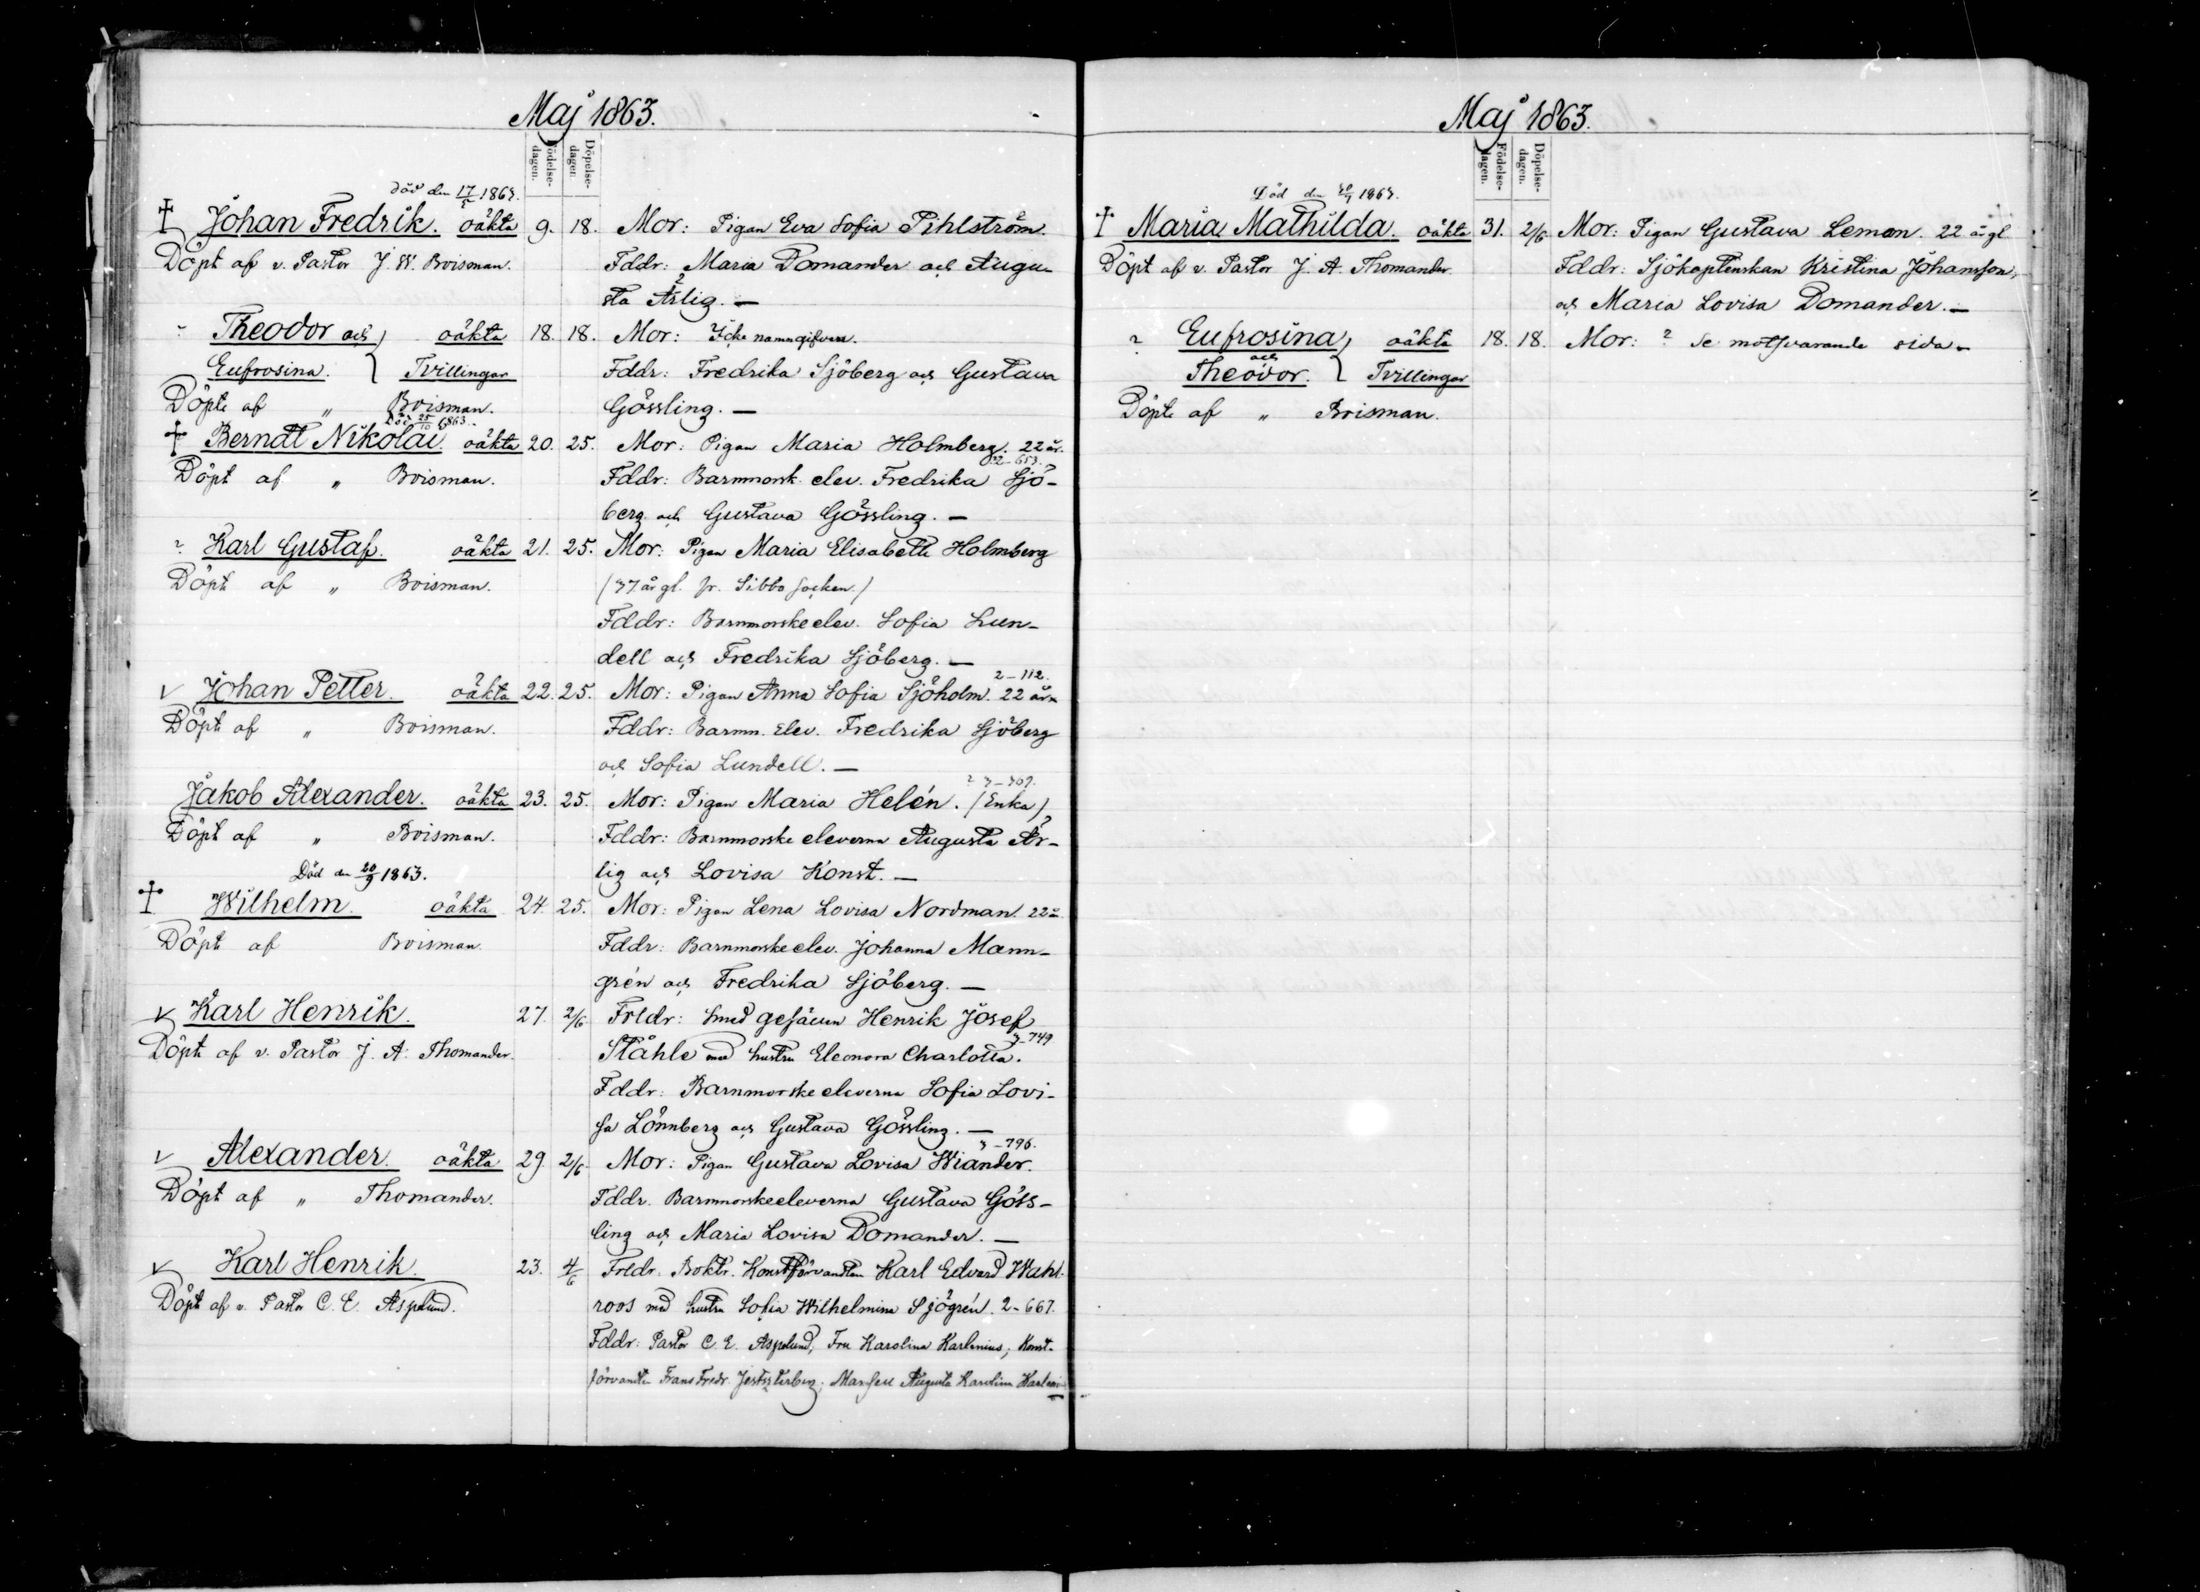 Maj 1863.
Födelse-dagen. Döpelse-dagen.
död den 17/5 1863.
Johan Fredrik. oäkta 9. 18. Mor: Pigan Eva Sofia Pihlström.
Döpt af v. Pastor J. W. Boisman. Fddr: Maria Domander och Augu-
sta Ärlig. —
Theodor och oäkta 18. 18. Mor: Icke namngifven.
Eufrosina. Tvillingar Fddr: Fredrika Sjöberg och Gustava
Döpte af " Boisman. Gössling. —
Död 25/10 1863.
Berndt Nikolai. oäkta 20. 25. Mor: Pigan Maria Holmberg. 22 år.
2-653.
Döpt af " Boisman. Fddr: Barnmorsk. elev. Fredrika Sjö-
berg och Gustava Gössling. —
? Karl Gustaf. oäkta 21. 25. Mor: Pigan Maria Elisabeth Holmberg
Döpt af " Boisman. (37 år gl. fr. Sibbo socken)
Fddr: Barnmorske elev. Sofia Lun-
dell och Fredrika Sjöberg. —
2-112.
v Johan Petter. oäkta 22. 25. Mor: Pigan Anna Sofia Sjöholm. 22 år.
Döpt af " Boisman. Fddr: Barnm. Elev. Fredrika Sjöberg
och Sofia Lundell. —
? 3-309.
Jakob Alexander. oäkta 23. 25. Mor: Pigan Maria Helén. (Enka)
Döpt af " Boisman. Fddr: Barnmorske eleverna Augusta Är-
Död den 20/9 1863. lig och Lovisa Konst. —
Wilhelm. oäkta 24. 25. Mor: Pigan Lena Lovisa Nordman. 22 å.
Döpt af Boisman. Fddr: Barnmorske elev. Johanna Mann-
grén och Fredrika Sjöberg. —
v Karl Henrik. 27. 2/6 Frldr: Smed gesällen Henrik Josef
3-749
Döpt af v. Pastor J. A. Thomander. Ståhle med hustru Eleonora Charlotta.
Fddr: Barnmorske eleverna Sofia Lovi-
sa Lönnberg och Gustava Gössling. —
3-796.
v Alexander. oäkta 29. 2/6 Mor: Pigan Gustava Lovisa Wiander.
Döpt af " Thomander. Fddr. Barnmorskeeleverna Gustava Göss-
ling och Maria Lovisa Domander. —
v Karl Henrik. 23. 4/6 Frldr. Boktr. Konstförvandten Karl Edvard Wahl-
Döpt af v. Pastor C. E. Aspelund. roos med hustru Sofia Wilhelmina Sjögrén. 2-667.
Fddr: Pastor C. E. Aspelund, Fru Karolina Karlenius, Konst-
förvandten Frans Fredr. Mamsell Augusta Karolina
Maj 1863.
Födelse-dagen. Döpelse-dagen.
Död den 1863.
Maria Mathilda. oäkta 31. 2/6 Mor: Pigan Gustava Leman. 22 år gl.
Döpt af v. Pastor J. A. Thomander. Fddr: Sjökaptenskan Kristina Johansson,
och Maria Lovisa Domander. —
? Eufrosina oäkta 18. 18. Mor: ? Se motsvarande sida.
och
Theodor. Tvillingar
Döpte af " Boisman.